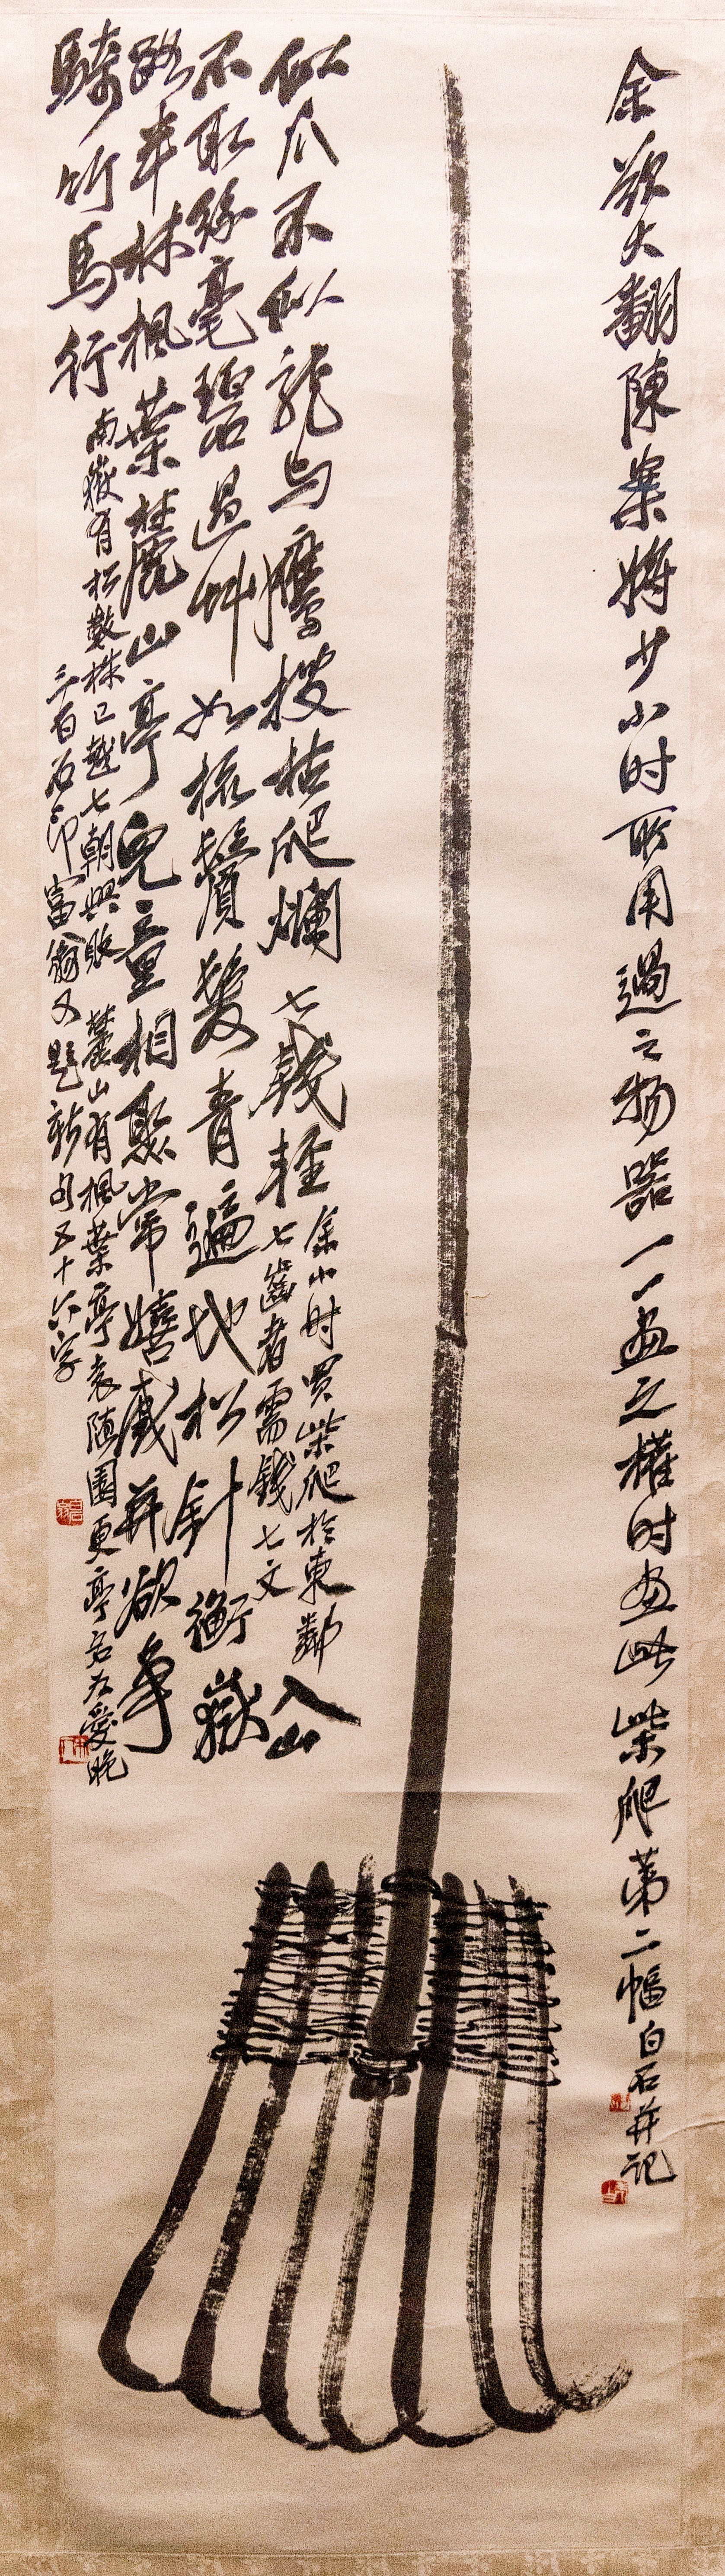 余欲大翻陳案將少小时所用過之物器一一畫之權时畫此柴爬第二幅白石并记
似爪不似龍与鷹搜枯爬爛七錢輕
余小时買柴爬於東鄰
七齒者需錢七文
入山
不取絲毫碧過艸如梳鬢髮青遍地松針衡嶽
路半林楓葉麓山亭兒童相聚常嬉戲并欲爭
騎竹馬行
南嶽有松數株已越七朝興敗麓山有楓葉亭袁隨園更亭名為愛晚
三百石印富翁又題新句五十六字